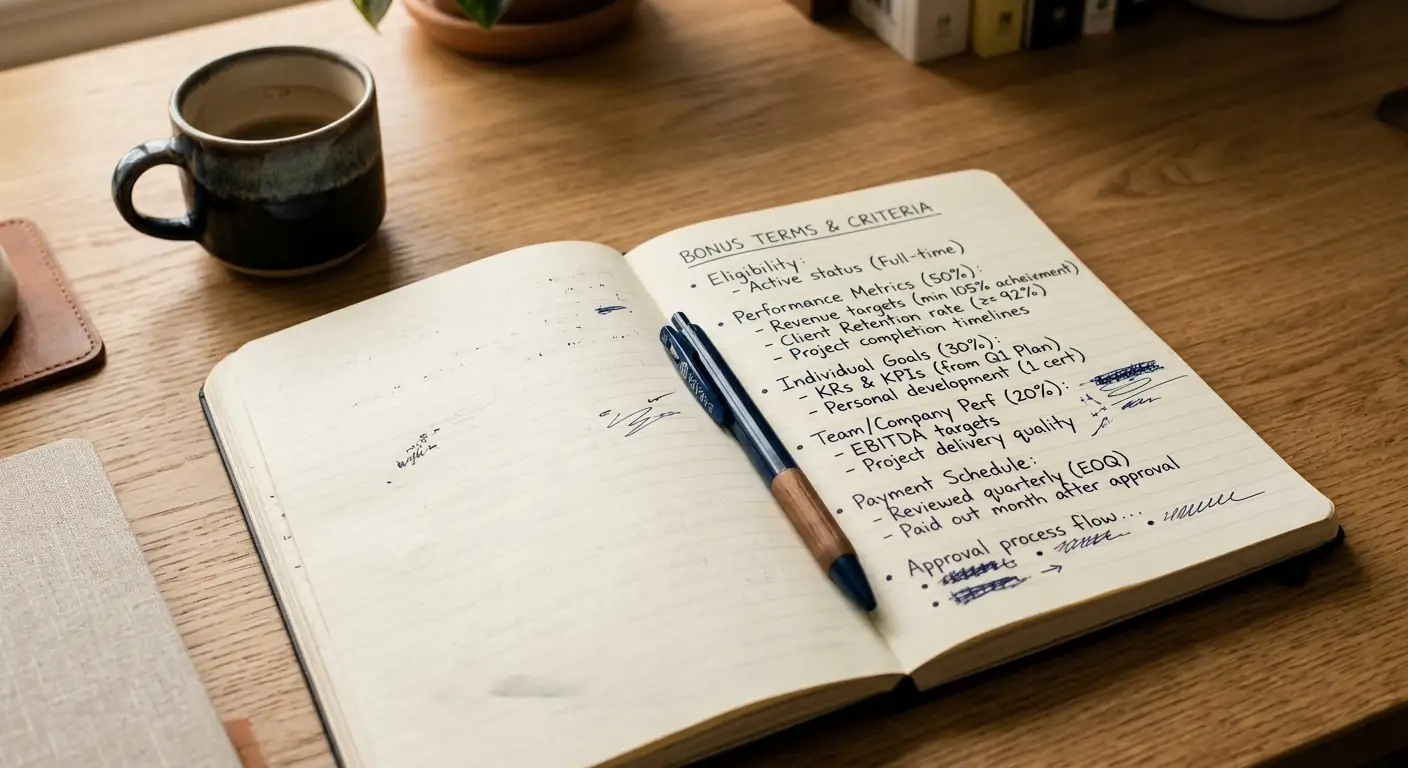 BONUS TERMS & CRITERIA
• Eligibility:
- Active status (Full-time)
• Performance Metrics (50%):
- Revenue targets (min 105% acheirment)
- Client Retention rate (z= 92%)
- Project completion timelines
• Individual Goals (30%):
- KRs & KPIs (from Q1 Plan)
- Personal development (1 cert)
• Team/Company Perf (20%):
- EBITDA targets
- Project delivery quality
• Payment Schedule:
- Reviewed quarterly (EOQ)
- Paid out month after approval
• Approval process flow...